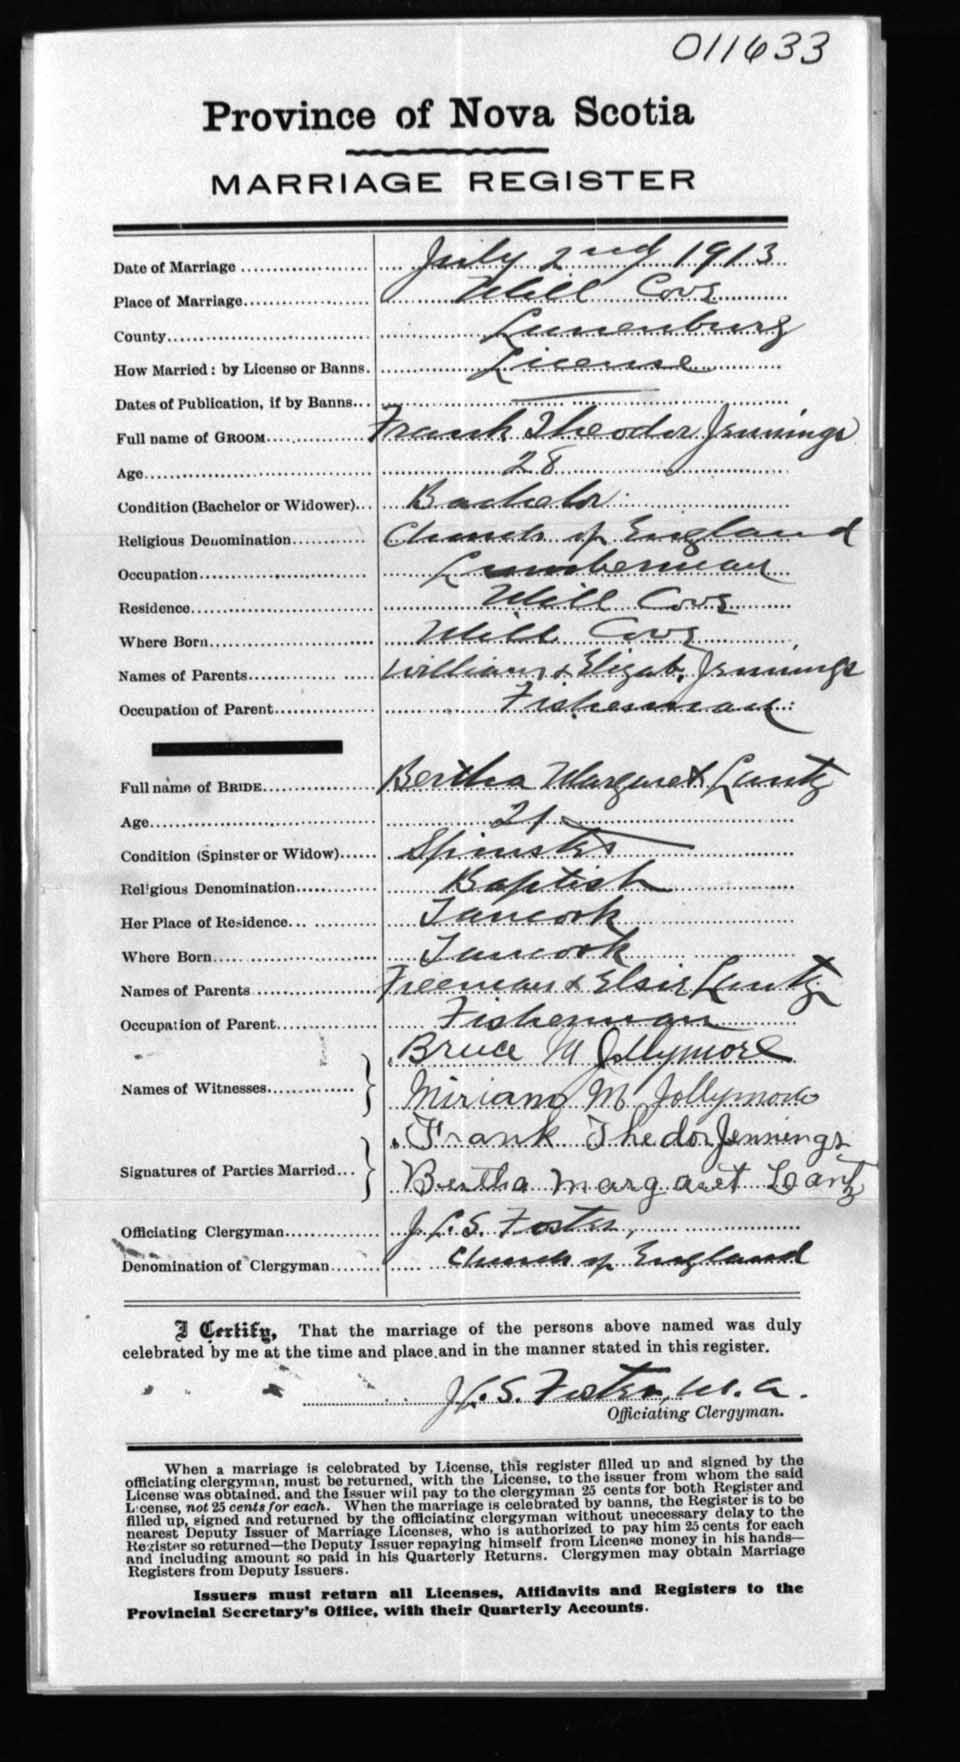 011633
Province of Nova Scotia
MARRIAGE REGISTER
Date of Marriage ................... July 2nd 1913
Place of Marriage................... Mill Cove
County.............................. Lunenburg
How Married: by License or Banns. License
Dates of Publication, if by Banns... —
Full name of GROOM............... Frank Theodor Jennings
Age................................. 28
Condition (Bachelor or Widower)... Bachelor
Religious Denomination............ Church of England
Occupation.......................... Lumberman
Residence........................... Mill Cove
Where Born......................... Mill Cove
Names of Parents................... William & Elizab. Jennings
Occupation of Parent............... Fisherman
Full name of BRIDE................. Bertha Margaret Lantz
Age................................. 21
Condition (Spinster or Widow)...... Spinster
Religious Denomination............ Baptist
Her Place of Residence............. Tancook
Where Born......................... Tancook
Names of Parents................... Freeman & Elsie Lantz
Occupation of Parent............... Fisherman
Bruce M Jollymore
Names of Witnesses..............
Miriam M Jollymore
Frank Thedor Jennings
Signatures of Parties Married...
Bertha Margaret Loantz
Officiating Clergyman.............. J. L. S. Foster,
Denomination of Clergyman........ Church of England
I Certify, That the marriage of the persons above named was duly
celebrated by me at the time and place and in the manner stated in this register.
J. L. S. Foster, M. A.
Officiating Clergyman.
When a marriage is celebrated by License, this register filled up and signed by the
officiating clergyman, must be returned, with the License, to the issuer from whom the said
License was obtained, and the Issuer will pay to the clergyman 25 cents for both Register and
License, not 25 cents for each. When the marriage is celebrated by banns, the Register is to be
filled up, signed and returned by the officiating clergyman without unecessary delay to the
nearest Deputy Issuer of Marriage Licenses, who is authorized to pay him 25 cents for each
Register so returned—the Deputy Issuer repaying himself from License money in his hands—
and including amount so paid in his Quarterly Returns. Clergymen may obtain Marriage
Registers from Deputy Issuers.
Issuers must return all Licenses, Affidavits and Registers to the
Provincial Secretary's Office, with their Quarterly Accounts.